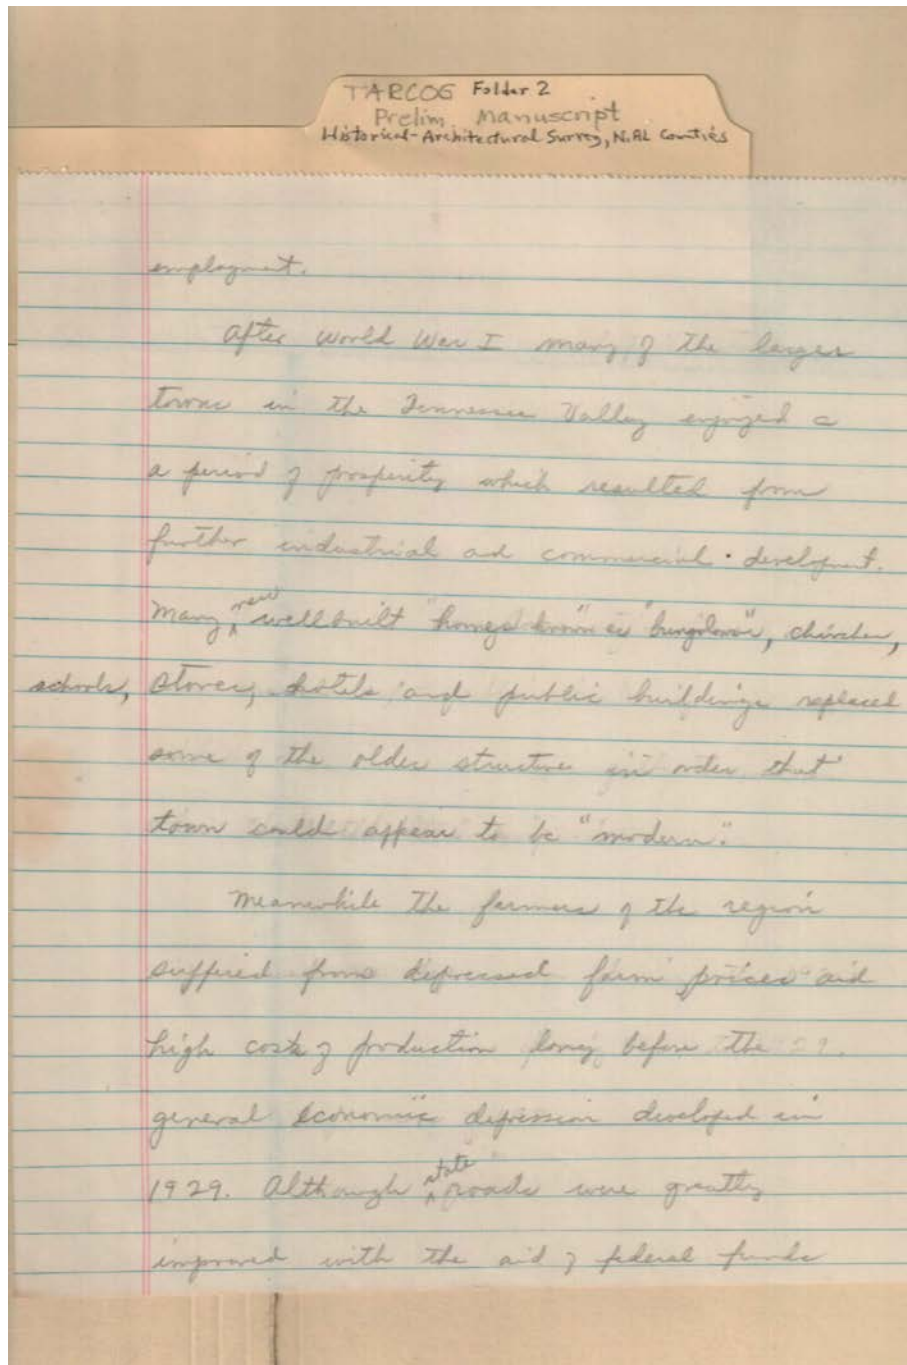 TARCOG Folder 2
Prelim. Manuscript
Historical-Architectural Survey, N. AL Counties
employment.
After World War I many of the larger
towns in the Tennessee Valley enjoyed a
a period of prosperity which resulted from
further industrial and commercial development.
new
Many well built "homes known as "bungalows", churches,
schools, stores, hotels and public buildings replaced
some of the older structure in order that
town could appear to be "modern."
Meanwhile the farmers of the region
suffered from depressed farm prices and
high costs of production long before the
general economic depression developed in
state
1929. Although roads were greatly
improved with the aid of federal funds